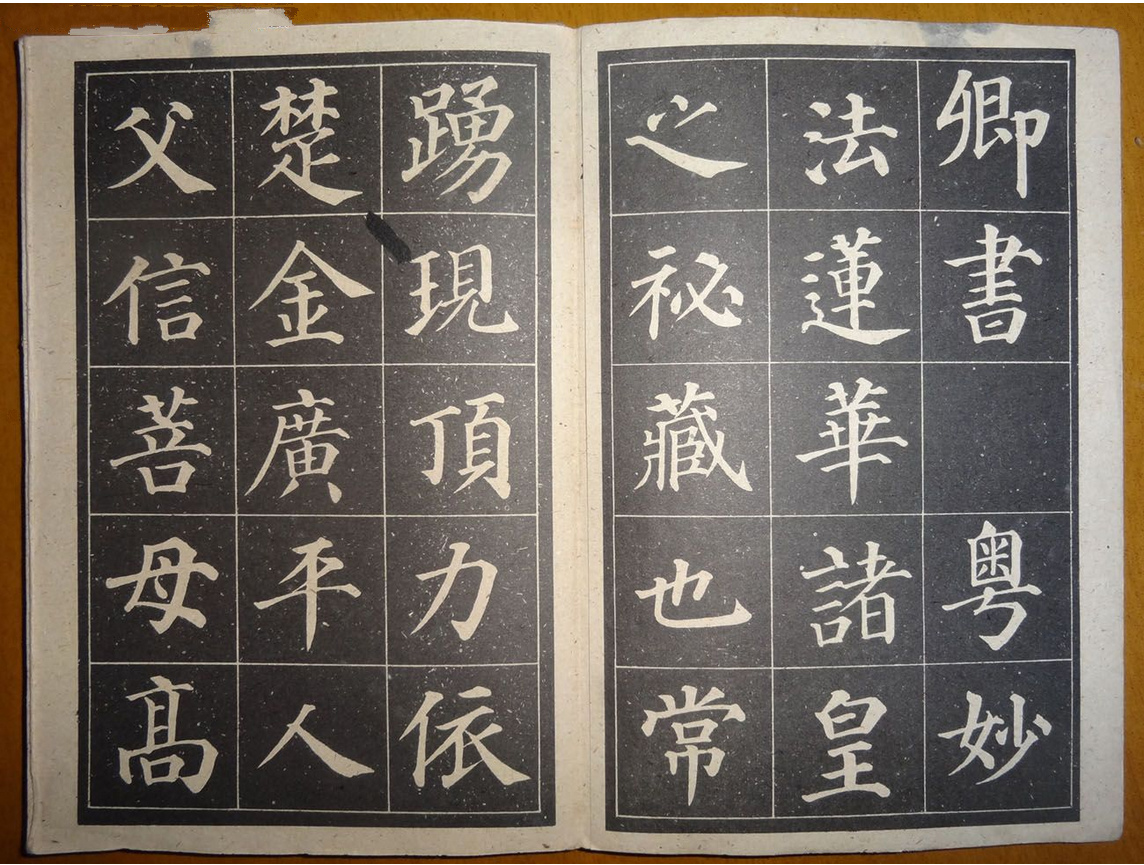 卿書 粤妙
法蓮華諸皇
之祕藏也常
踴現頂力依
楚金廣平人
父信菩母高